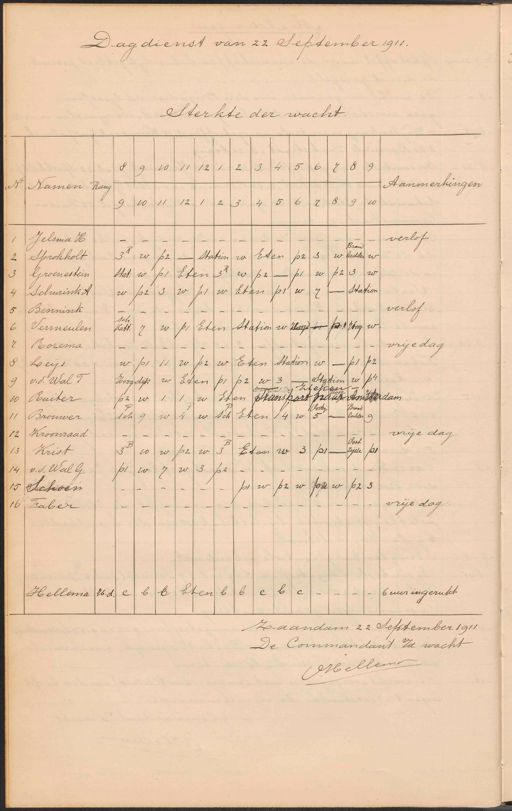 Dagdienst van 22 September 1911.
Sterkte der wacht
8 9 10 11 12 1 2 3 4 5 6 7 8 9
No Namen Rang Aanmerkingen
9 10 11 12 1 2 3 4 5 6 7 8 9 10
1 Jelsma H – – – – – – – – – – – – – – verlof
2 Sprokholt 3 R w p2 — Station w Eten p2 3 w w
3 Groenestein Stat w p1 Eten 3 R w p2 — p1 w p2 3 w
4 Selurink A w p2 3 w p1 w Eten p1 w 7 — Station
5 Bennink – – – – – – – – – – – – – – verlof
6 Vermeulen 7 w p1 Eten Station w w
7 Rozema – – – – – – – – – – – – – – vrije dag
8 Leijs w p1 11 w p2 w Eten Station w — p1 p2
9 v.d. Wal T w Eten p1 p2 w 3 — Station w p4
10 Ruiter p2 w 1 1 w Eten Transport Zieken naar Amsterdam
11 Brouwer 9 w w Eten 14 w 5 — 9
12 Kroonraad – – – – – – – – – – – – – – vrije dag
13 Krist 3 B 10 w p2 w 3 B Eten w 3 p1 — p1
14 v.d. Wal G p1 w 7 w 3 p2 – – – – – – – –
15 Schoen – – – – – – p1 w p2 w w p2 3
16 Faber – – – – – – – – – – – – – – vrije dag
Hellema c b b Eten b b c b c – – – – 6 uur ingerukt
Zaandam 22 September 1911
De Commandant v/d wacht
Hellema